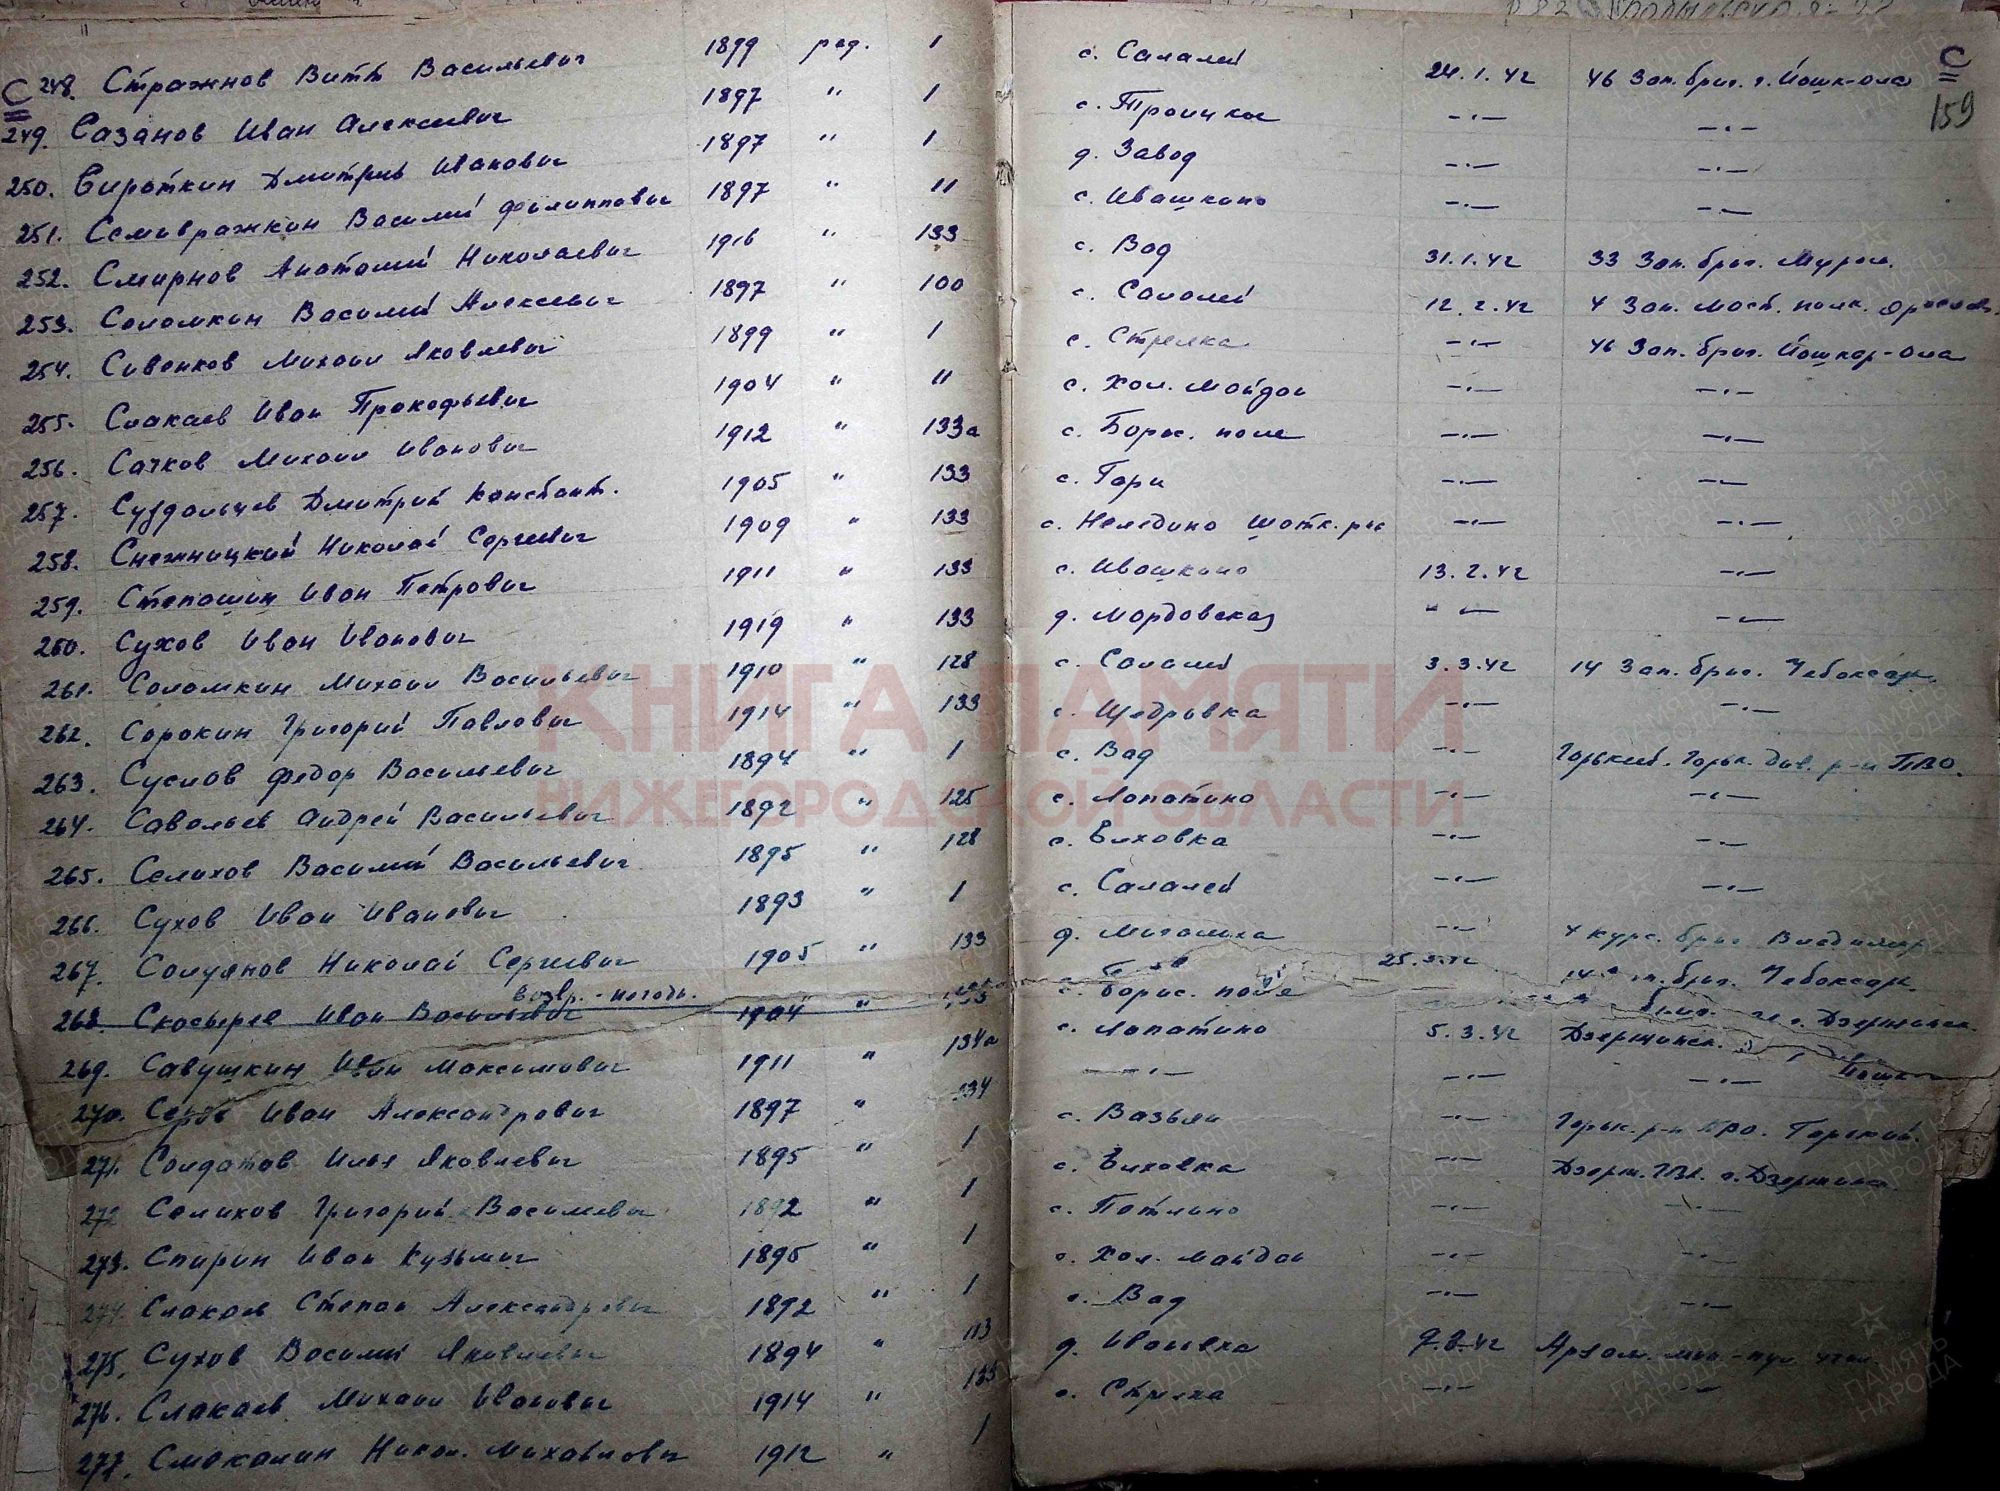 С
248. Стражнов Витт Васильевич 1899 ряд. 1 с. Салалей 24.1.42 46 Зап. бриг. г. Йошк-Ола
С
159
249. Сазанов Иван Алексеевич 1897 " 1 с. Троицкое —·— —·—
250. Сироткин Дмитрий Иванович 1897 " 1 д. Завод —·— —·—
251. Семивражкин Василий Филиппович 1897 " 11 с. Ивашкино —·— —·—
252. Смирнов Анатолий Николаевич 1916 " 133 с. Вад 31.1.42 33 Зап. бриг. Муром.
253. Соломкин Василий Алексеевич 1897 " 100 с. Салалей 12.2.42 4 Зап. мост. полк.
254. Сивенков Михаил Яковлевич 1899 " 1 с. Стрелка —·— 46 Зап. бриг. Йошкар-Ола
255. Слакаев Иван Прокофьевич 1904 " 11 с. Хол. Майдан —·— —·—
256. Сачков Михаил Иванович 1912 " 133а с. Борис. поле —·— —·—
257. Суздальцев Дмитрий Констант. 1905 " 133 с. Гари —·— —·—
258. Снежницкий Николай Сергеевич 1909 " 133 с. Неледино Шатк. р-н —·— —·—
259. Степашин Иван Петрович 1911 " 133 с. Ивашкино 13.2.42 —·—
260. Сухов Иван Иванович 1919 " 133 д. Мордовская " — —·—
261. Соломкин Михаил Васильевич 1910 " 128 с. Салалей 3.3.42 14 Зап. бриг. Чебоксар.
262. Сорокин Григорий Павлович 1914 " 133 с. Щедровка —·— —·—
263. Суслов Федор Васильевич 1894 " 1 с. Вад —·— Горький. Горьк. див. р-н ПВО.
264. Савельев Андрей Васильевич 1892 " 125 с. Лопатино —·— —·—
265. Селихов Василий Васильевич 1895 " 128 с. Елховка —·— —·—
266. Сухов Иван Иванович 1893 " 1 с. Салалей —·— —·—
267. Солуянов Николай Сергеевич 1905 " 133 д. Миголиха —·— 4 курс. бриг. Владимир
возвр. - негодн.
268. Скосырев Иван Васильевич 1904 " с. Борис. поле 25.3.42 бриг. Чебоксар.
269. Савушкин Иван Максимович 1911 " 134а с. Лопатино 5.3.42 Дзержинск.
270. Серов Иван Александрович 1897 " 134 —·— —·— —·— Йошк
271. Солдатов Илья Яковлевич 1895 " 1 с. Вазьян —·— Горьк. р-н ПВО. Горький.
272 Селихов Григорий Васильевич 1892 " 1 с. Елховка —·— Дзерж. г. Дзержинск.
273. Спирин Иван Кузьмич 1895 " 1 с. Потлино —·— —·—
274. Слакаев Степан Александрович 1892 " 1 с. Хол. Майдан —·— —·—
275. Сухов Василий Яковлевич 1894 " 113 с. Вад —·— —·—
276. Слакаев Михаил Иванович 1914 " 133 д. Ивановка 9.3.42 Арзам.
277. Смокалин Никол. Михайлович 1912 " 1 с. Стрелка —·— —·—
КНИГА ПАМЯТИ
НИЖЕГОРОДСКОЙ ОБЛАСТИ
ПАМЯТЬ НАРОДА